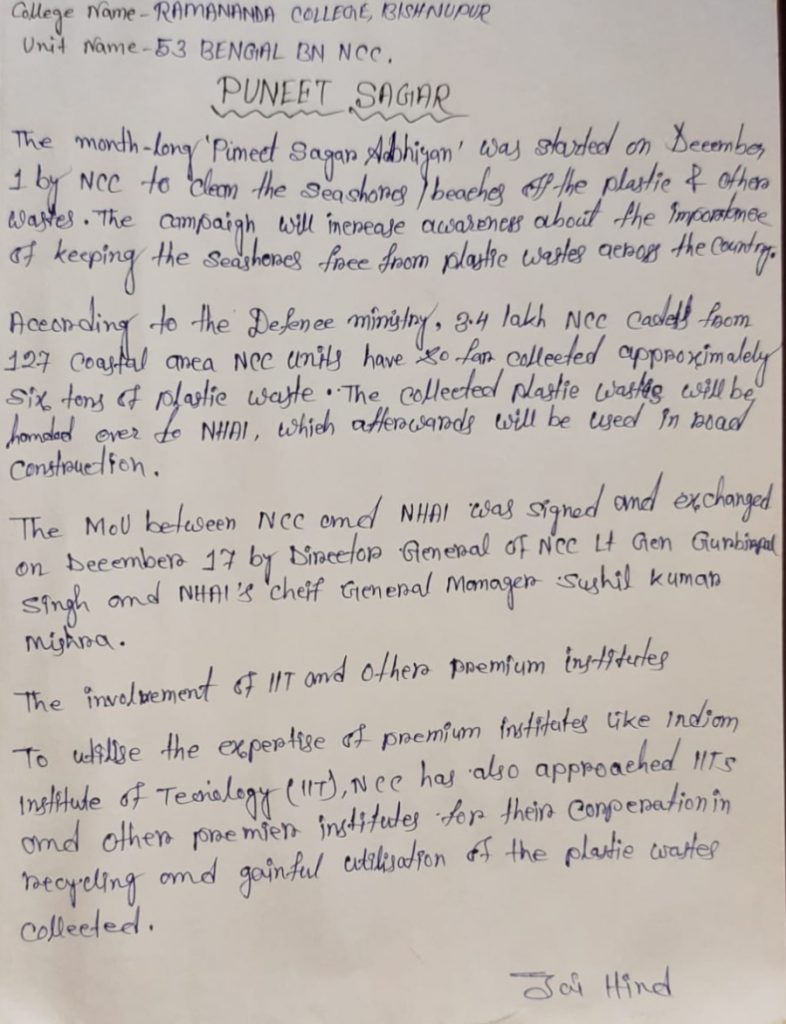 College Name - RAMANANDA COLLEGE, BISHNUPUR
Unit Name - 53 BENGAL BN NCC.
PUNEET SAGAR
The month-long 'Pimeet Sagar Abhiyan' was started on December
1 by NCC to clean the seashores / beaches off the plastic & other
wastes. The campaigh will increase awareness about the importance
of keeping the seashores free from plastic wastes across the country.
According to the Defence ministry, 3.4 lakh NCC cadets from
127 coastal area NCC units have so far collected approximately
six tons of plastic waste. The collected plastic wastes will be
handed over to NHAI, which afterwards will be used in road
construction.
The MoU between NCC and NHAI was signed and exchanged
on December 17 by Director General of NCC Lt Gen Gurbirpal
Singh and NHAI's cheif General Manager Sushil Kumar
Mishra.
The involvement of IIT and other premium institutes
To utilise the expertise of premium institutes like Indian
Institute of Tecnology (IIT), NCC has also approached IITs
and other premier institutes for their Cooperation in
recycling and gainful utilisation of the plastic wastes
collected.
Jai Hind